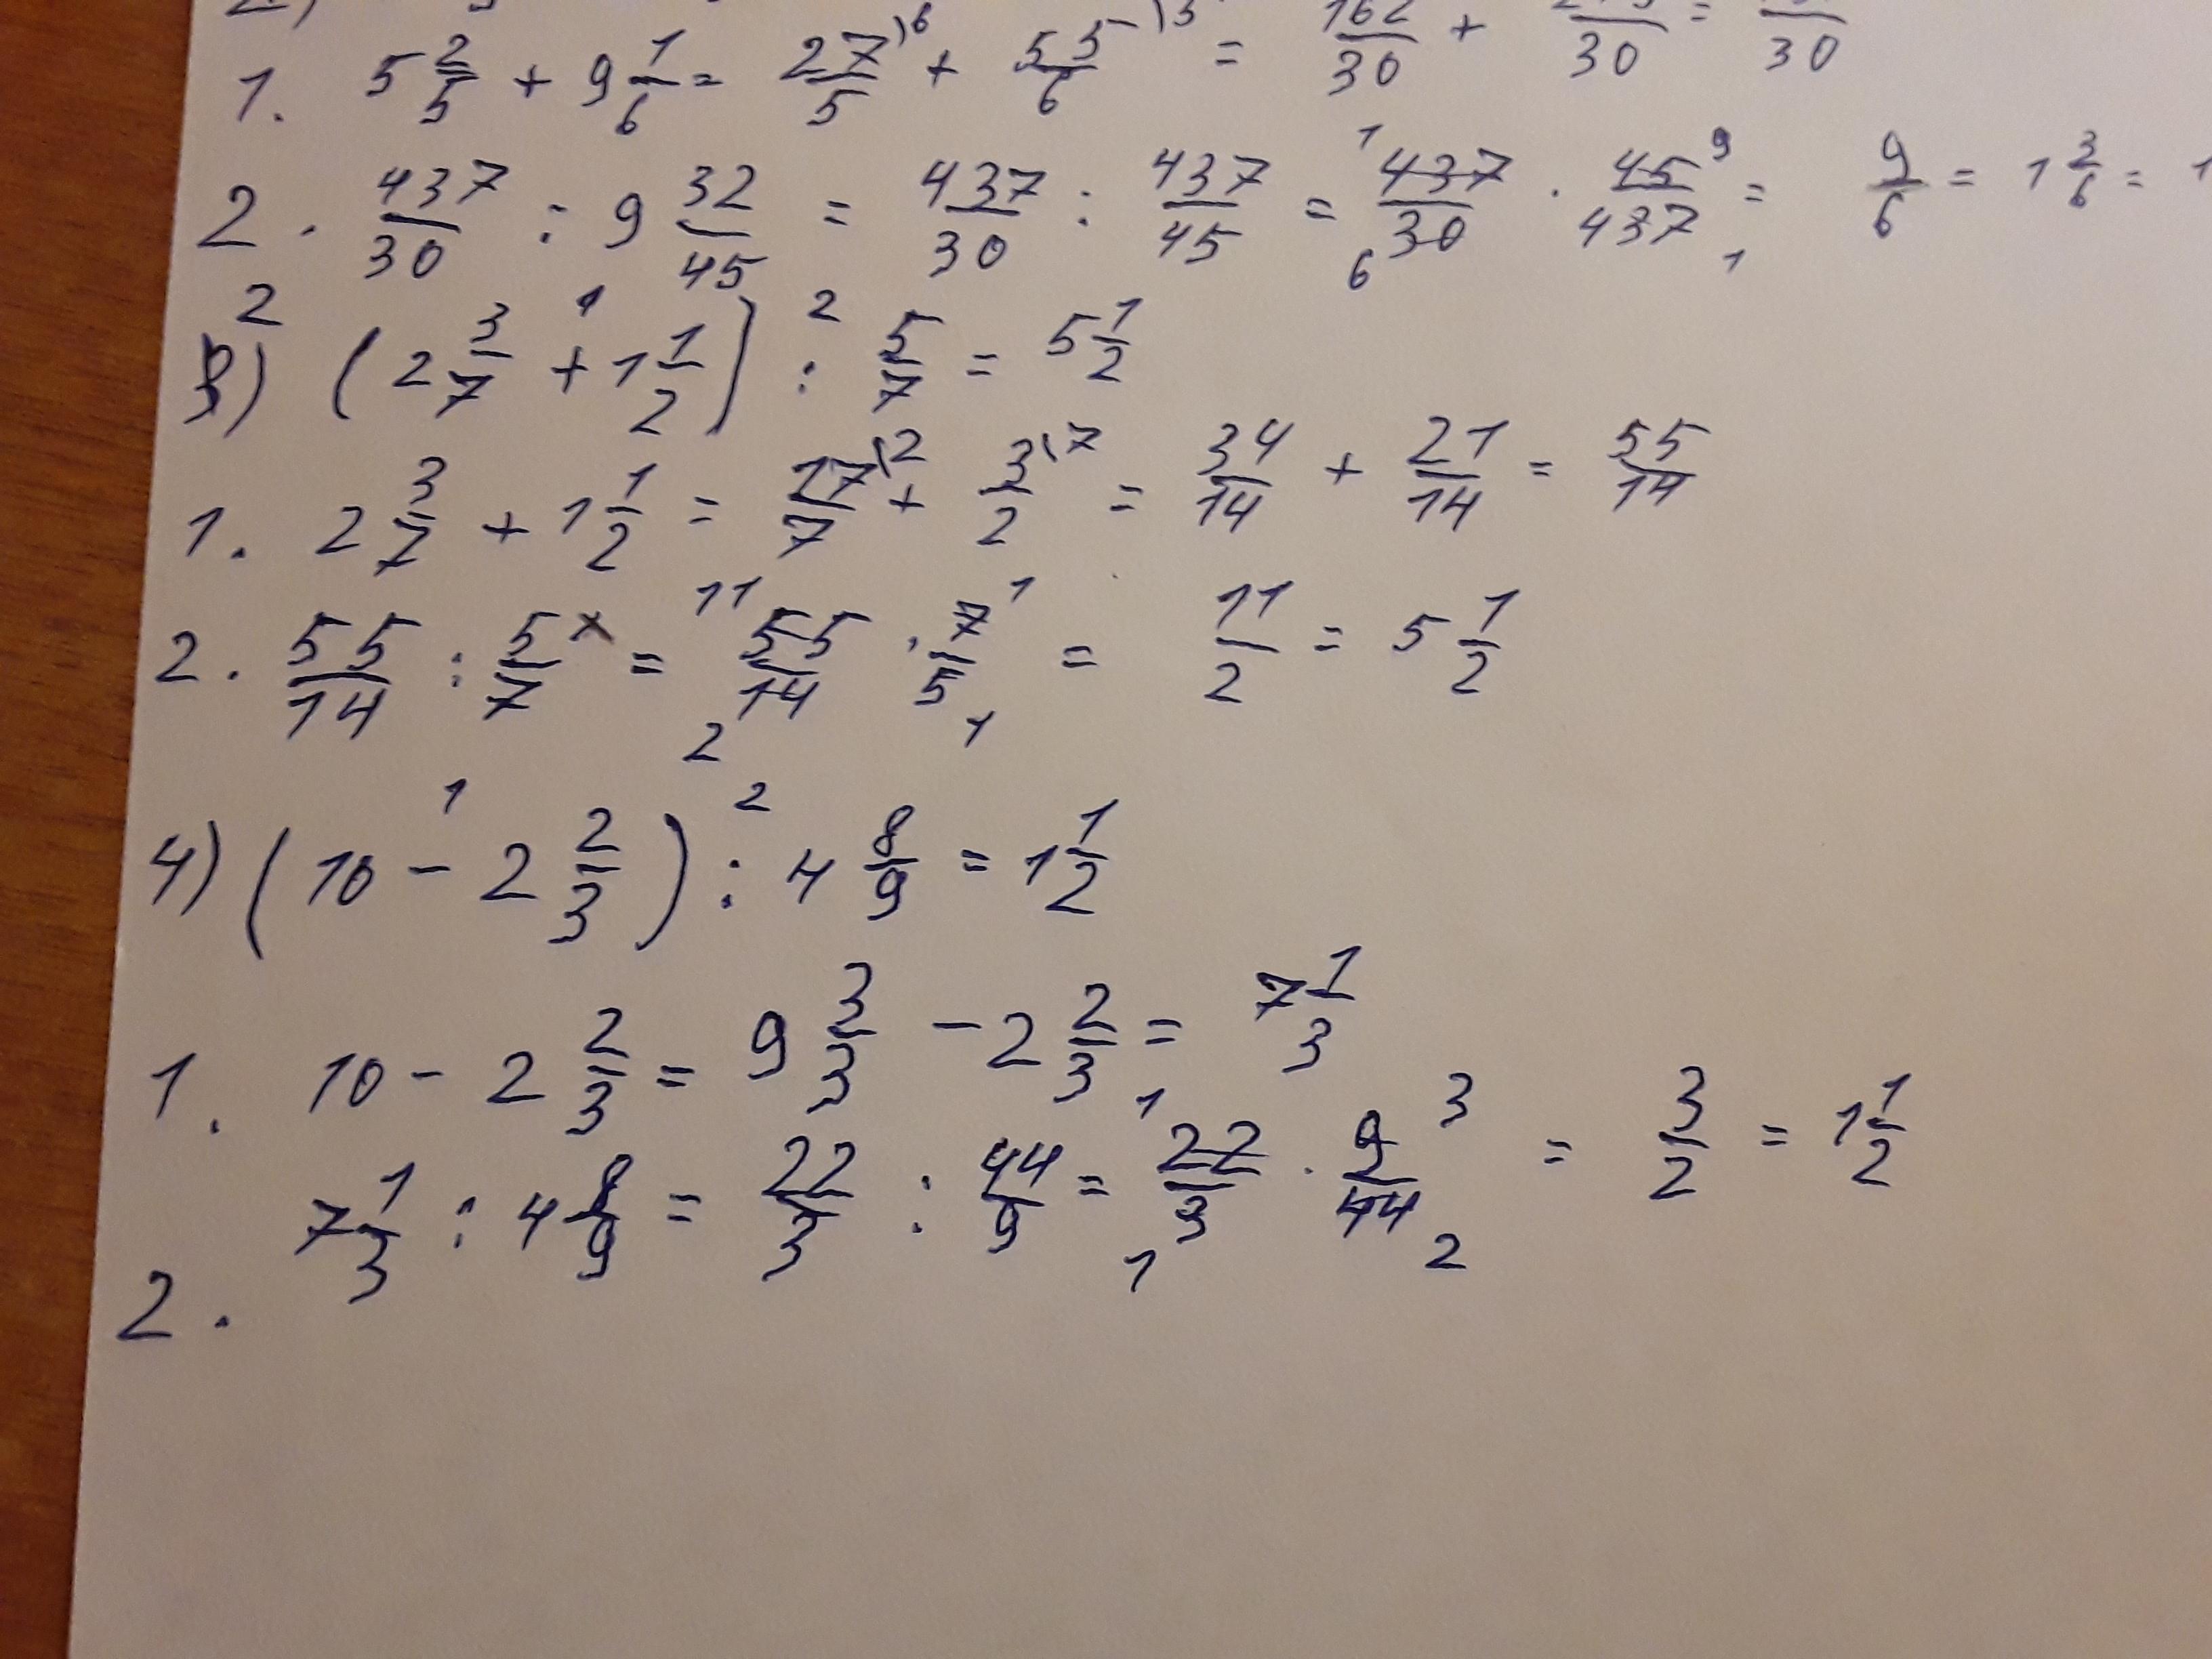 2)
1. 5 2/5 + 9 1/6 = 27/5 \6 + 55/6 \5 = 162/30 + 275/30 = /30
2. 437/30 : 9 32/45 = 437/30 : 437/45 = 1 437/30 6 · 45/437 9 1 = 9/6 = 1 3/6 = 1
2 1 2
3) (2 3/7 + 1 1/2) : 5/7 = 5 1/2
1. 2 3/7 + 1 1/2 = 17/7 \2 + 3/2 \7 = 34/14 + 21/14 = 55/14
2. 55/14 : 5/7 = 11 55/14 2 · 7/5 1 1 = 11/2 = 5 1/2
1 2
4) (10 - 2 2/3) : 4 8/9 = 1 1/2
1. 10 - 2 2/3 = 9 3/3 - 2 2/3 = 7 1/3
2. 7 1/3 : 4 8/9 = 22/3 : 44/9 = 1 22/3 1 · 9/44 3 2 = 3/2 = 1 1/2